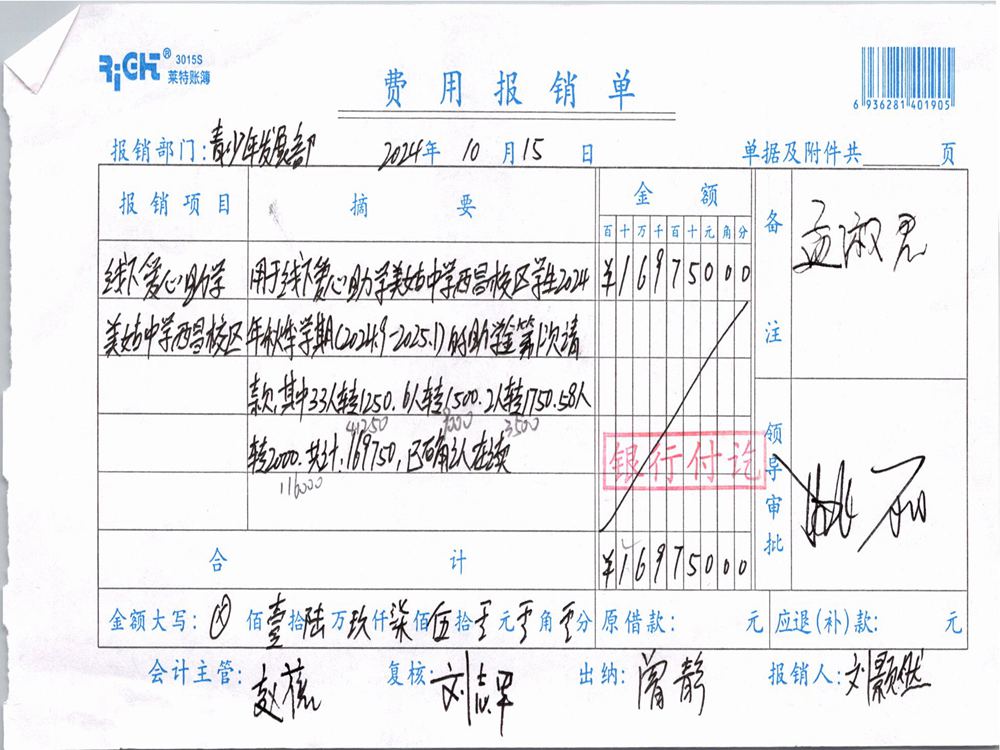 RiGHT® 3015S
莱特账簿
费用报销单
6 936281 401905
报销部门:青少年发展部 2024年10月15日 单据及附件共 页
报销项目 摘要 金额 备注
百十万千百十元角分
线下爱心助学 用于线下爱心助学美姑中学西昌校区学生2024 ¥16975000 孟淑君
美姑中学西昌校区 年秋季学期(2024.9-2025.1)的助学金第1次请
款,其中33人转1250.6人转1500.2人转1750.58人
41250 9000 3500
转2000.共计.169750,已石角认人在读
116000
银行付讫
领导审批
合计 ¥16975000
金额大写:ⓧ佰壹拾陆万玖仟柒佰伍拾零元零角零分 原借款: 元 应退(补)款: 元
会计主管: 复核: 出纳:曾静 报销人:刘颢然